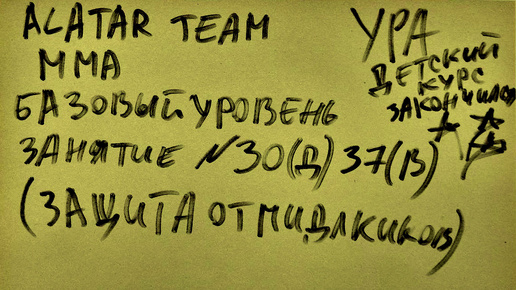 ALATAR TEAM
MMA
БАЗОВЫЙ УРОВЕНЬ
ЗАНЯТИЕ №30(Д) 37(В)
(ЗАЩИТА ОТ МИДЛКИКОВ)
УРА
ДЕТСКИЙ
КУРС
ЗАКОНЧИЛСЯ